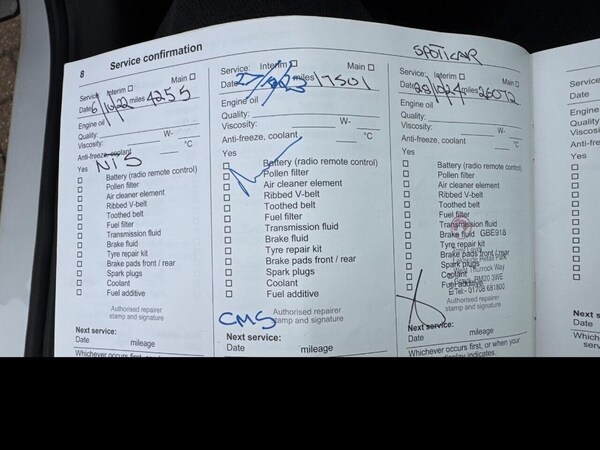 8 Service confirmation
Service: Interim Main
Date 6/10/22 miles 4255
Engine oil
Quality: W-
Viscosity: °C
Anti-freeze, coolant
Yes NTS
Battery (radio remote control)
Pollen filter
Air cleaner element
Ribbed V-belt
Toothed belt
Fuel filter
Transmission fluid
Brake fluid
Tyre repair kit
Brake pads front / rear
Spark plugs
Coolant
Fuel additive
Authorised repairer
stamp and signature
Next service:
Date mileage
Whichever occurs first, or when your
Service: Interim Main
Date miles 17501
Engine oil
Quality: W-
Viscosity:
Anti-freeze, coolant °C
Yes
Battery (radio remote control)
Pollen filter
Air cleaner element
Ribbed V-belt
Toothed belt
Fuel filter
Transmission fluid
Brake fluid
Tyre repair kit
Brake pads front / rear
Spark plugs
Coolant
Fuel additive
Authorised repairer
CMS stamp and signature
Next service:
Date mileage
Whichever occurs first, or when your
SPOTICAR
Service: Interim Main
Date miles 26072
Engine oil
Quality: W-
Viscosity:
Anti-freeze, coolant °C
Yes
Battery (radio remote control)
Pollen filter
Air cleaner element
Ribbed V-belt
Toothed belt
Fuel filter
Transmission fluid
Brake fluid GBE918
Tyre repair kit
Brake pads front / rear
Spark plugs Thurrock Way
Coolant RM20 3WE
Fuel additive Tel: 01708 681800
Authorised repairer
stamp and signature
Next service:
Date mileage
Whichever occurs first, or when your
display indicates.
Service
Date
Engine
Quality
Viscosi
Anti-fre
Yes
Next s
Date
Which
serv